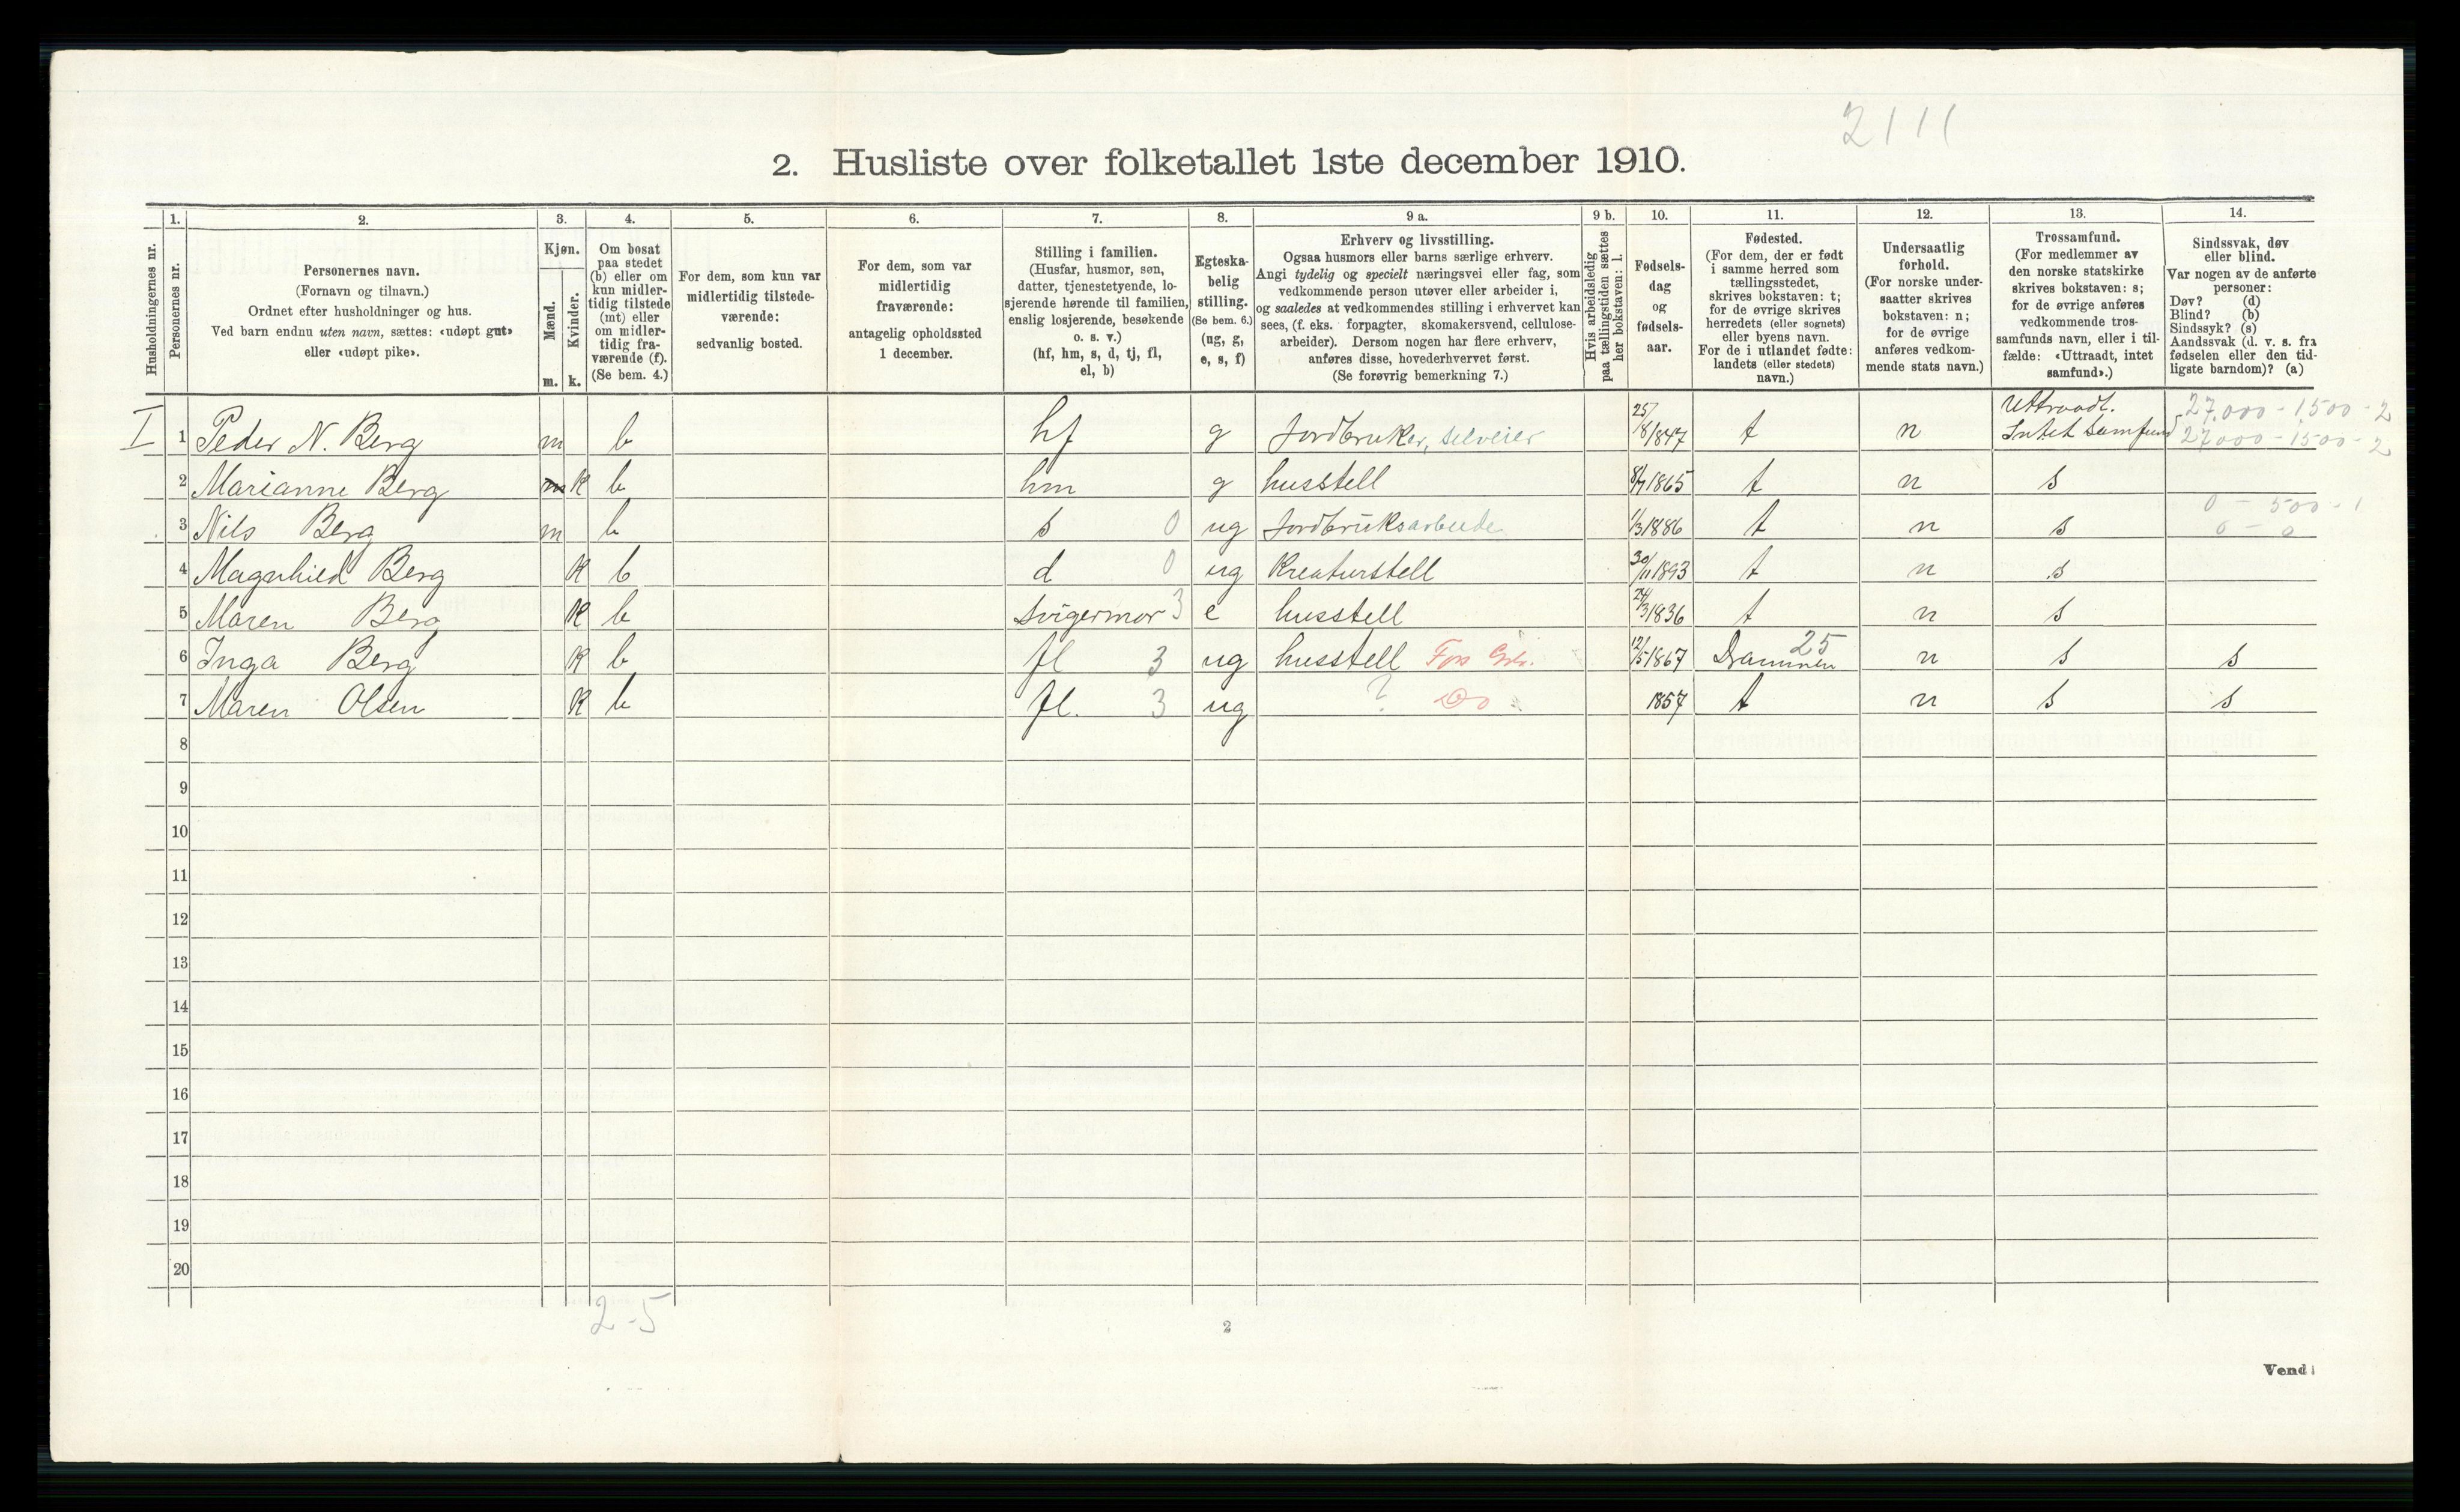 2111
2. Husliste over folketallet 1ste december 1910.
Husholdningernes nr.
1. Personernes nr.
2. Personernes navn.
(Fornavn og tilnavn.)
Ordnet efter husholdninger og hus.
Ved barn endnu uten navn, sættes: «udøpt gut»
eller «udøpt pike».
3. Kjøn.
Mænd. m.
Kvinder. k.
4. Om bosat
paa stedet
(b) eller om
kun midler-
tidig tilstede
(mt) eller
om midler-
tidig fra-
værende (f).
(Se bem. 4.)
5. For dem, som kun var
midlertidig tilstede-
værende:
sedvanlig bosted.
6. For dem, som var
midlertidig
fraværende:
antagelig opholdssted
1 december.
7. Stilling i familien.
(Husfar, husmor, søn,
datter, tjenestetyende, lo-
sjerende hørende til familien,
enslig losjerende, besøkende
o. s. v.)
(hf, hm, s, d, tj, fl,
el, b)
8. Egteska-
belig
stilling.
(Se bem. 6.)
(ug, g,
e, s, f)
9 a. Erhverv og livsstilling.
Ogsaa husmors eller barns særlige erhverv.
Angi tydelig og specielt næringsvei eller fag, som
vedkommende person utøver eller arbeider i,
og saaledes at vedkommendes stilling i erhvervet kan
sees, (f. eks. forpagter, skomakersvend, cellulose-
arbeider). Dersom nogen har flere erhverv,
anføres disse, hovederhvervet først.
(Se forøvrig bemerkning 7.)
9 b. Hvis arbeidsledig
paa tællingstiden sættes
her bokstaven: l.
10. Fødsels-
dag
og
fødsels-
aar.
11. Fødested.
(For dem, der er født
i samme herred som
tællingsstedet,
skrives bokstaven: t;
for de øvrige skrives
herredets (eller sognets)
eller byens navn.
For de i utlandet fødte:
landets (eller stedets)
navn.)
12. Undersaatlig
forhold.
(For norske under-
saatter skrives
bokstaven: n;
for de øvrige
anføres vedkom-
mende stats navn.)
13. Trossamfund.
(For medlemmer av
den norske statskirke
skrives bokstaven: s;
for de øvrige anføres
vedkommende tros-
samfunds navn, eller i til-
fælde: «Uttraadt, intet
samfund».)
14. Sindssvak, døv
eller blind.
Var nogen av de anførte
personer:
Døv? (d)
Blind? (b)
Sindssyk? (s)
Aandssvak (d. v. s. fra
fødselen eller den tid-
ligste barndom)? (a)
Uttraadt. 27.000 - 1500 - 2
I 1 Peder N. Berg m b hf g Jordbruker, selveier 25/8 1847 t n Intet Samfund 27000 - 1500 - 2
2 Marianne Berg m K b hm g husstell 8/7 1865 t n s
0 - 500 - 1
3 Nils Berg m b s 0 ug Jordbruksarbeide 1/3 1886 t n s 0 - 0
4 Magnhild Berg K b d 0 ug Kreaturstell 30/11 1893 t n s
5 Maren Berg K b svigermor 3 e husstell 24/3 1836 t n s
6 Inga Berg K b fl 3 ug husstell 12/5 1867 Drammen 25 n s s
7 Maren Olsen K b fl. 3 ug ? Do 1857 t n s s
8
9
10
11
12
13
14
15
16
17
18
19
20
2-5
2
Vend!